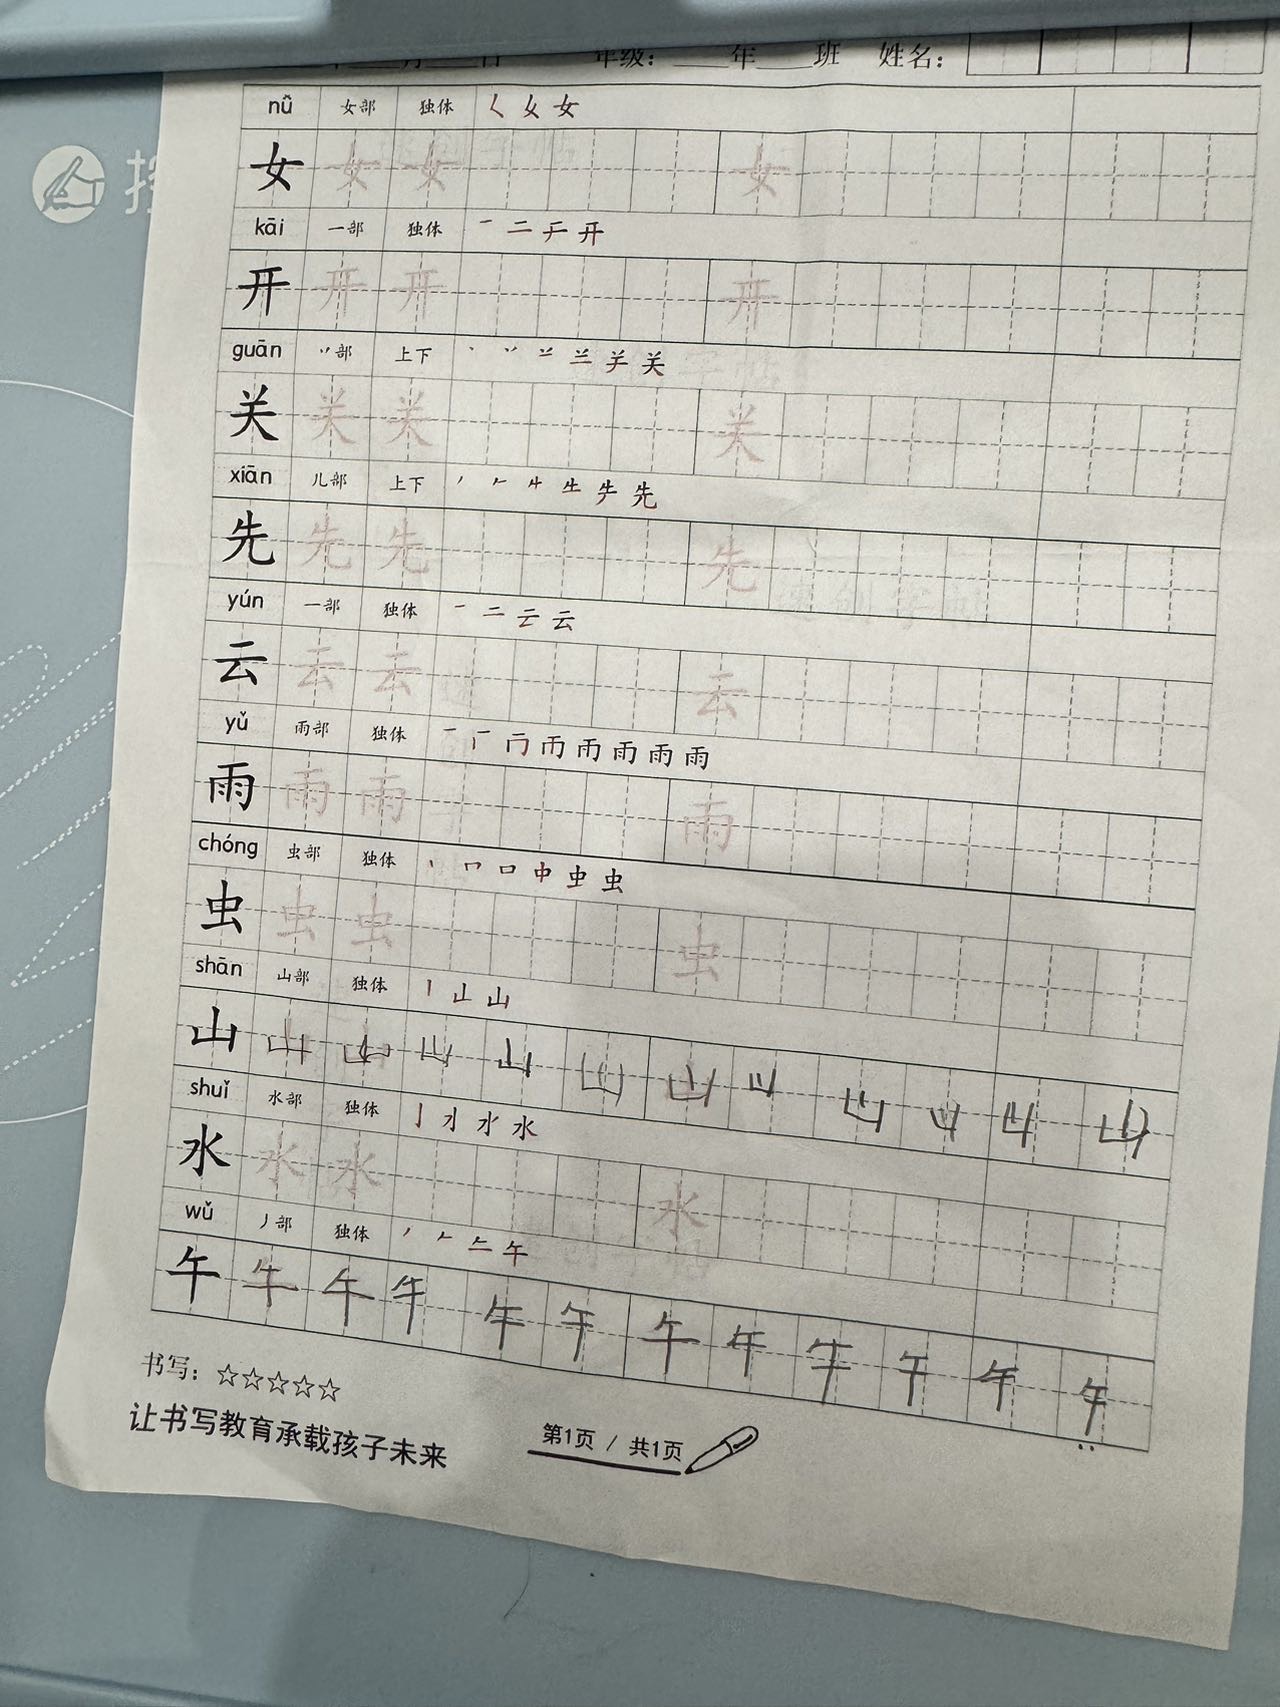 年级：____年____班 姓名：
nǚ 女部 独体 く 女 女
女 女 女 女
kāi 一部 独体 一 二 于 开
开 开 开 开
guān 丷部 上下 丶 丷 䒑 兰 关 关
关 关 关 关
xiān 儿部 上下 丿 𠂉 牛 生 先 先
先 先 先 先
yún 一部 独体 一 二 云 云
云 云 云 云
yǔ 雨部 独体 一 厂 冂 帀 雨 雨 雨 雨
雨 雨 雨 雨
chóng 虫部 独体 丨 冂 口 中 虫 虫
虫 虫 虫 虫
shān 山部 独体 丨 山 山
山 山 山 山 山 山 山 山 山 山 山 山
shuǐ 水部 独体 亅 水 水 水
水 水 水 水
wǔ 丿部 独体 丿 𠂉 午 午
午 午 午 午 午 午 午 午 午 午 午 午
书写：☆☆☆☆☆
让书写教育承载孩子未来
第1页 / 共1页